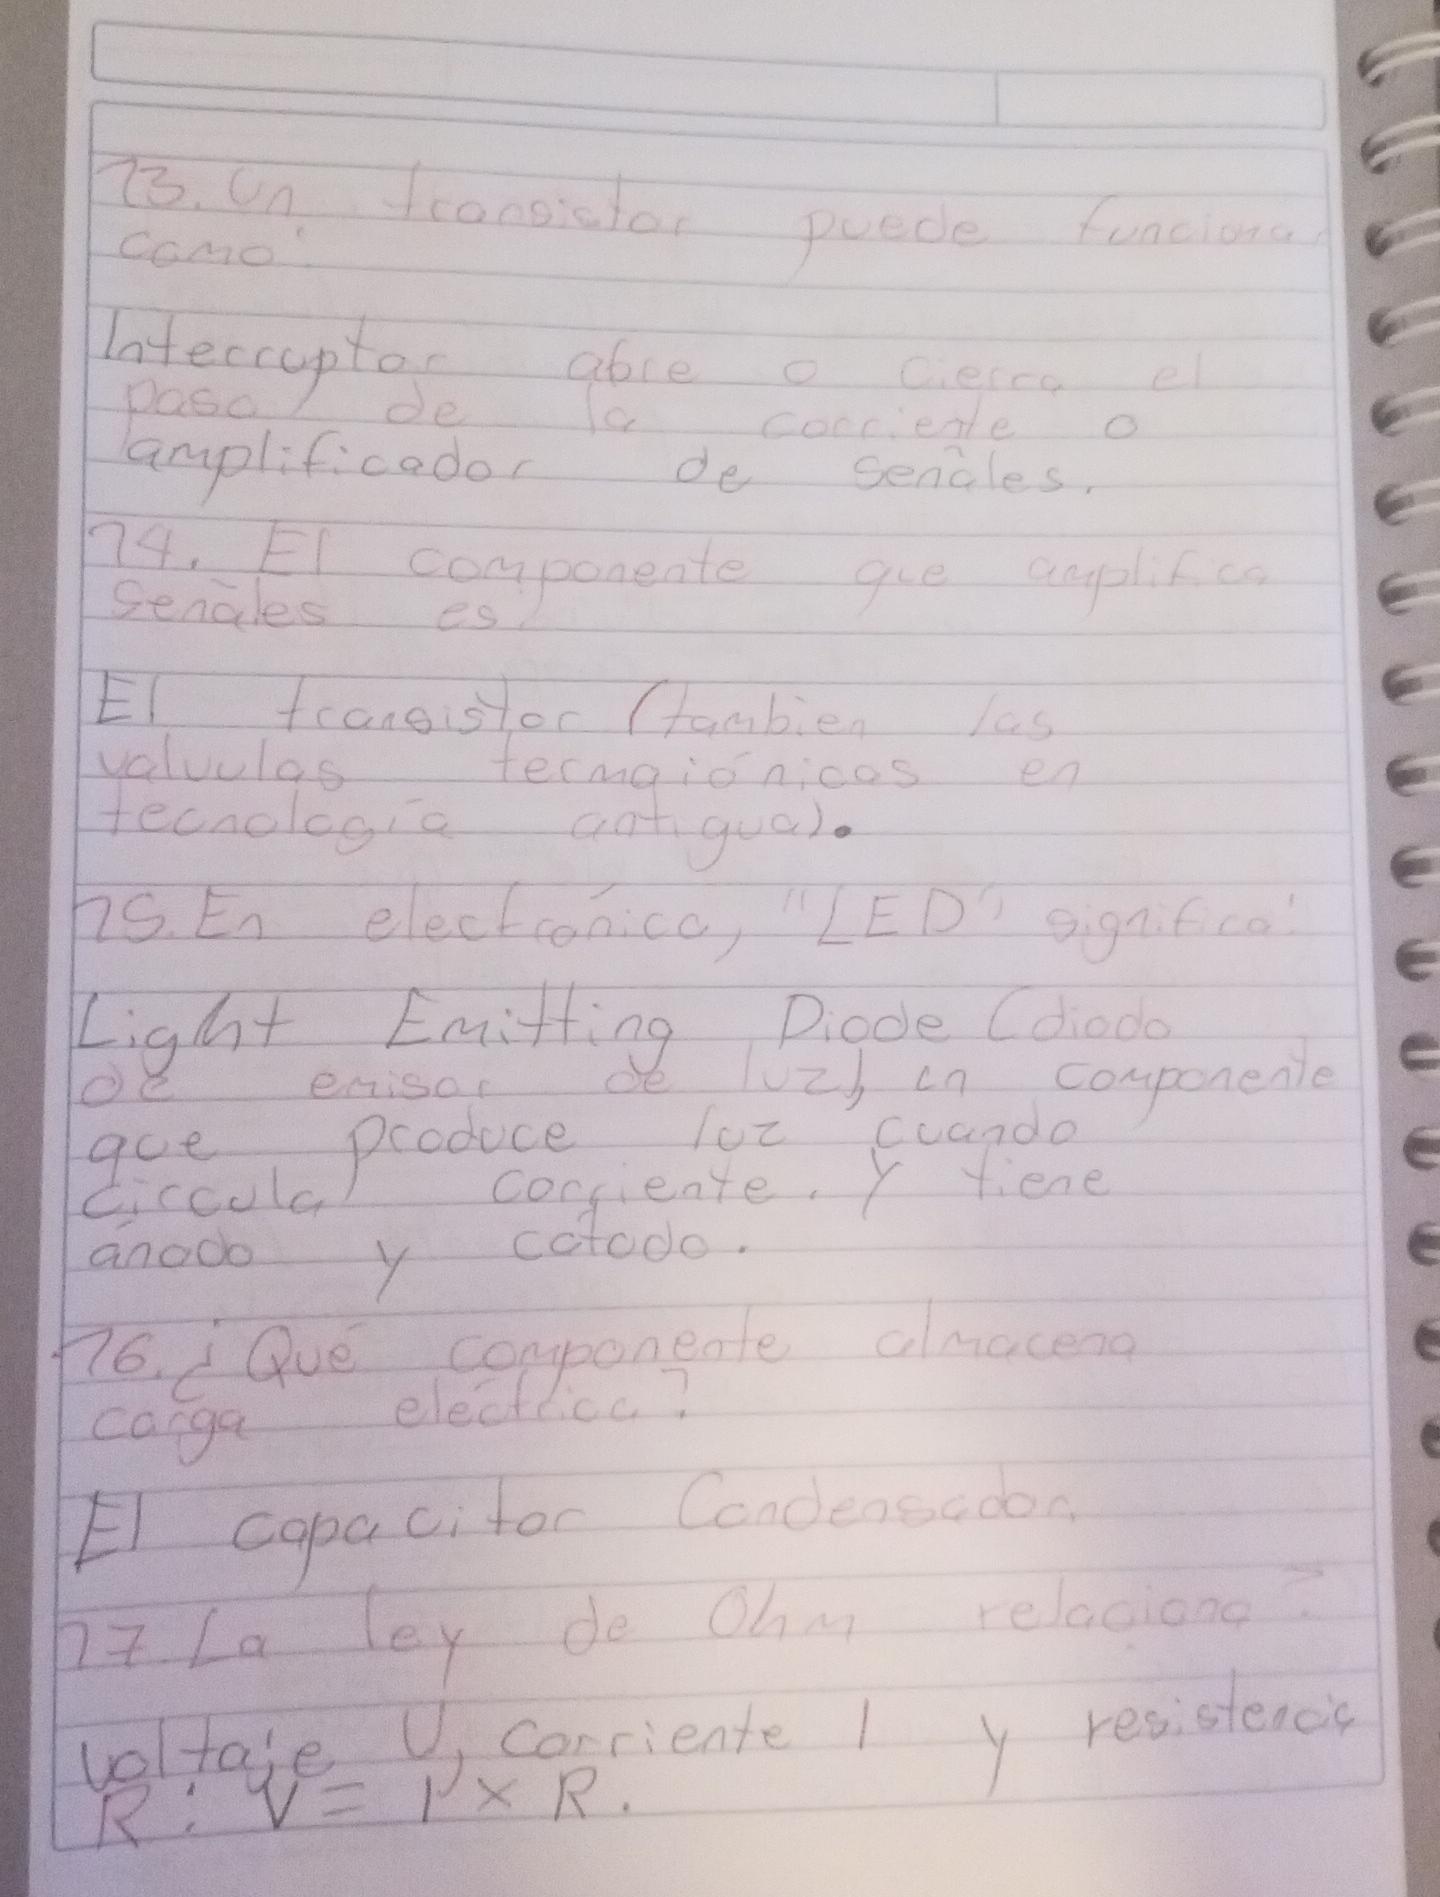 13. Un transistor puede funcionar
como:
Interruptor abre o cierra el
paso de la corriente o
amplificador de señales.
14. El componente que amplifica
señales es
El transistor (tambien las
valvulas termoiónicas en
tecnología antigua).
15. En electrónica, "LED" significa:
Light Emitting Diode (diodo
de emisor de luz), un componente
que produce luz cuando
circula corriente. y tiene
ánodo y cátodo.
16. ¿Qué componente almacena
carga eléctrica?
El capacitor Condensador.
17. La ley de Ohm relaciona?
voltaje V, corriente I y resistencia
R: V = I x R.